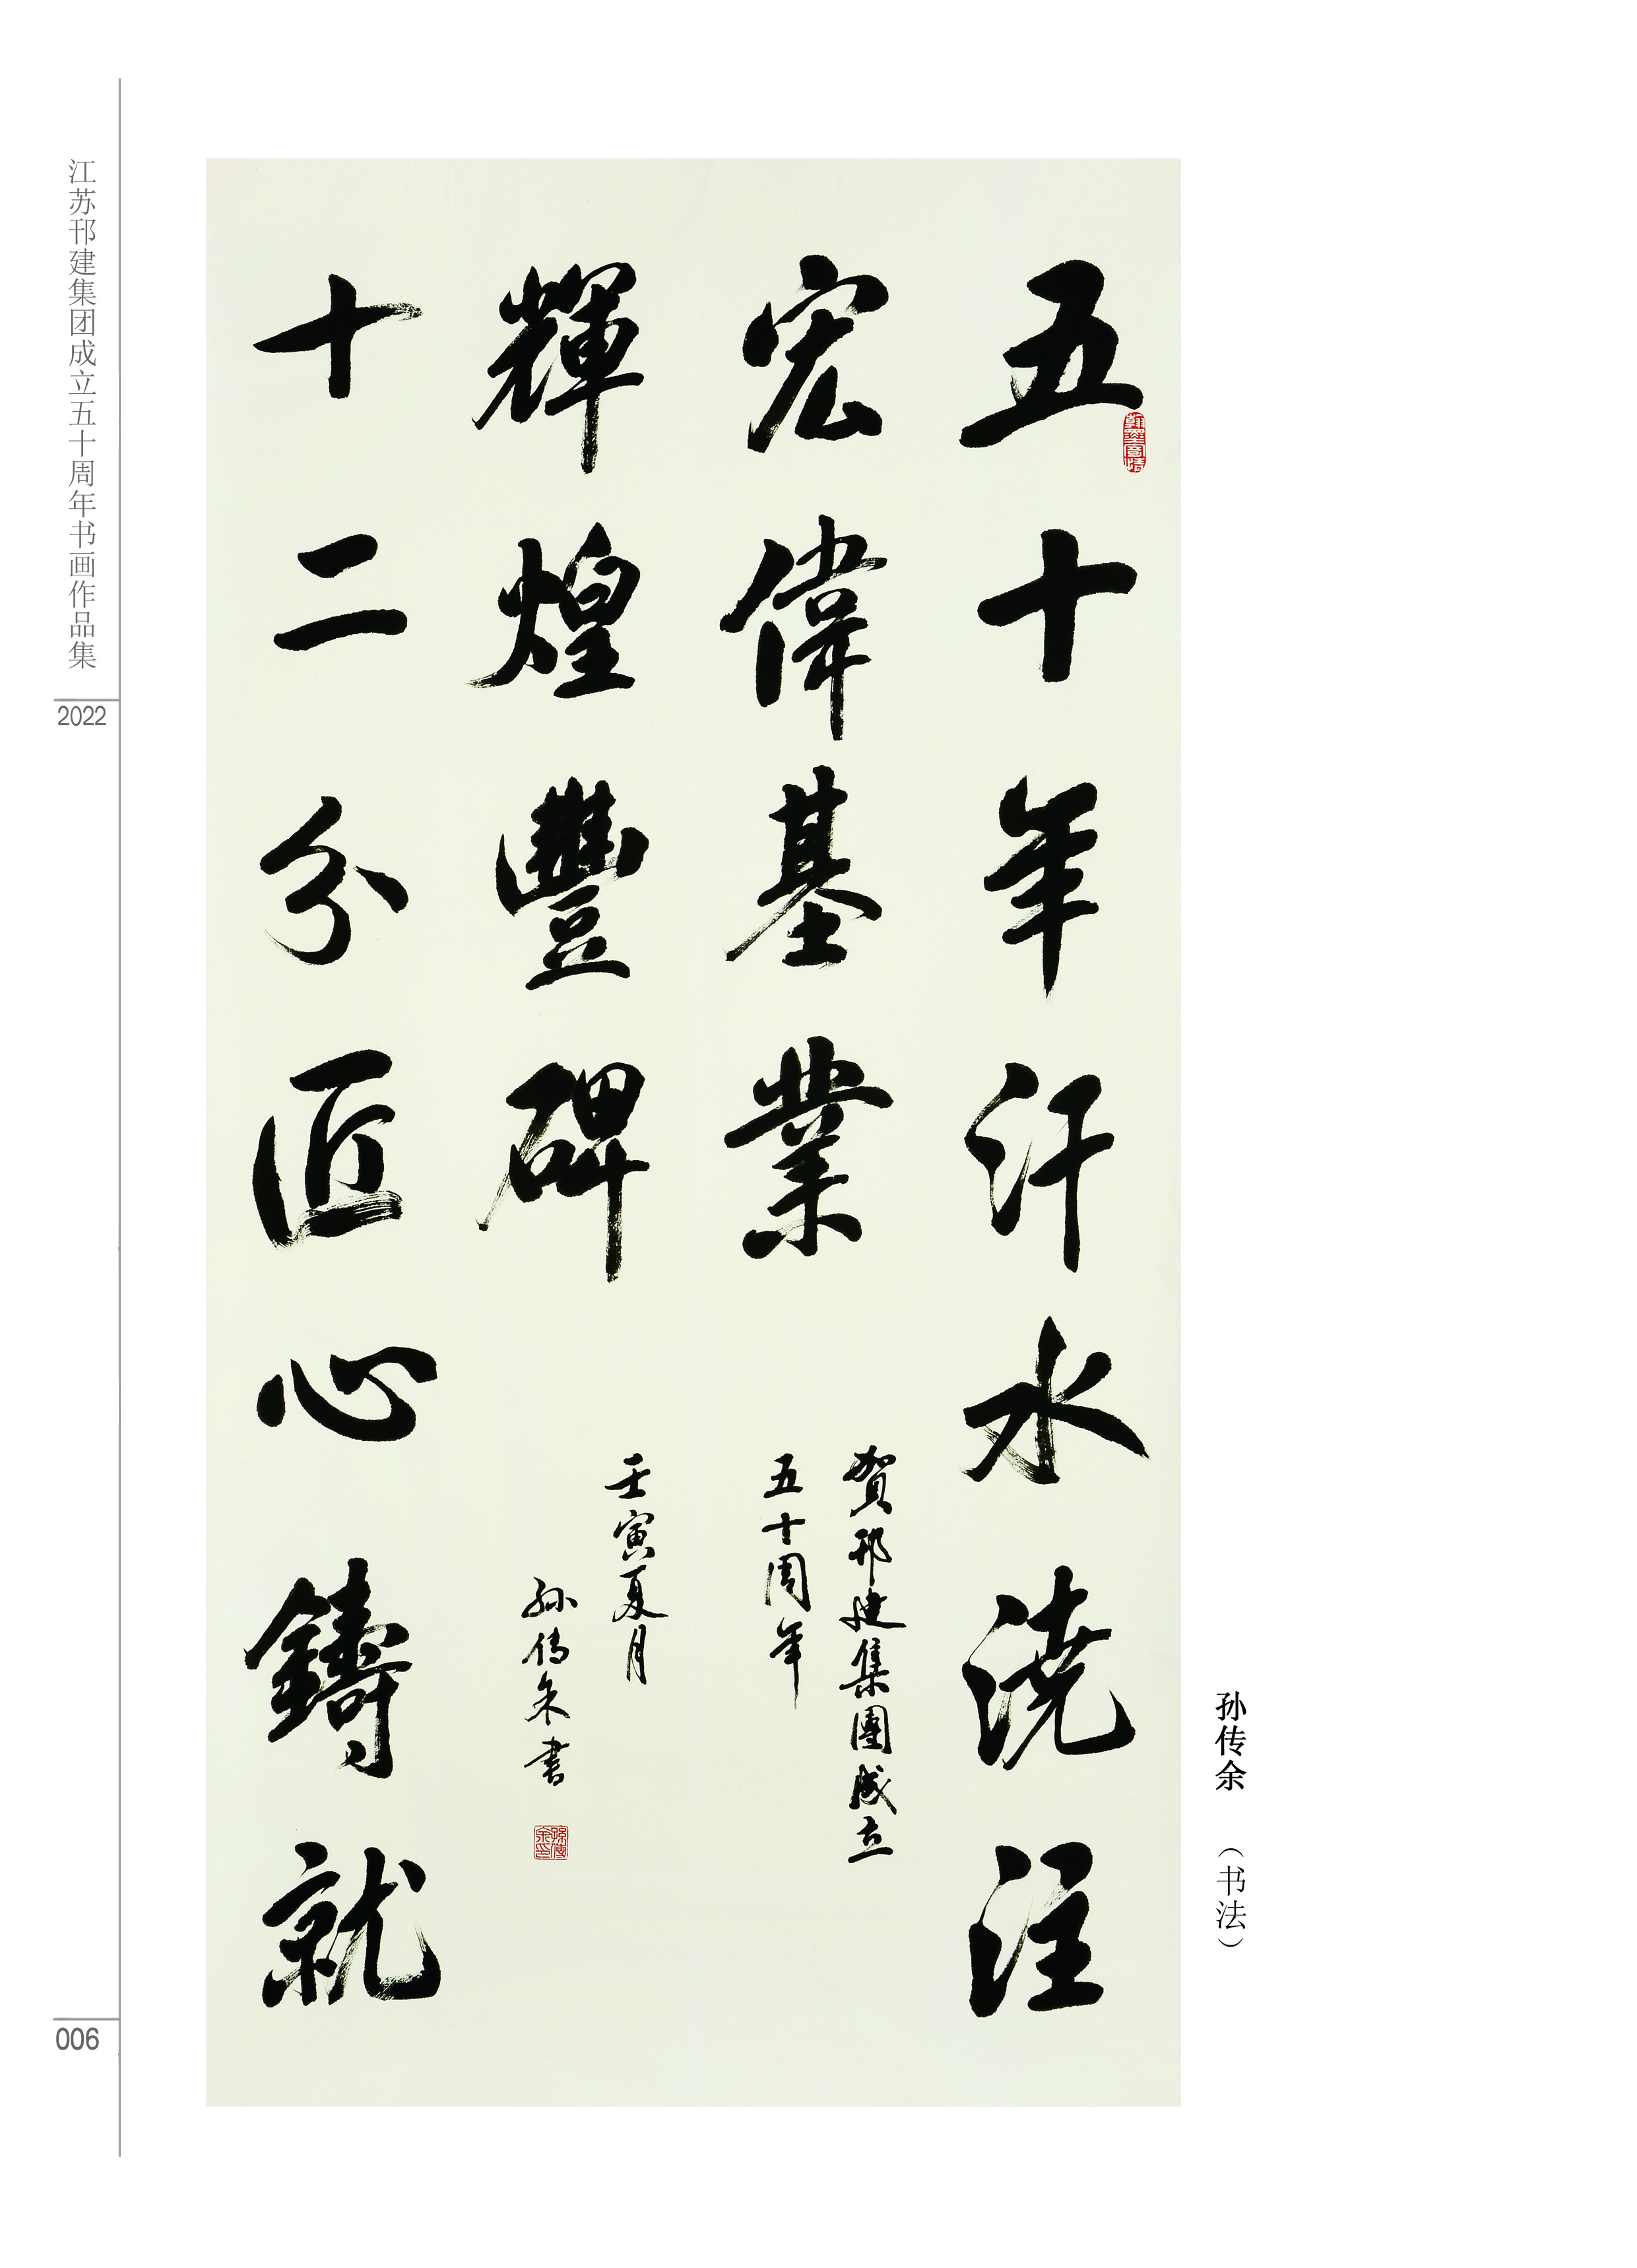 江苏邗建集团成立五十周年书画作品集
2022
五十年汗水浇注
宏偉基業
十二分匠心鑄就
輝煌豐碑
賀邗建集團成立
五十周年
壬寅夏月
孫傳余書
孫傳余印
孙传余 （书法）
006